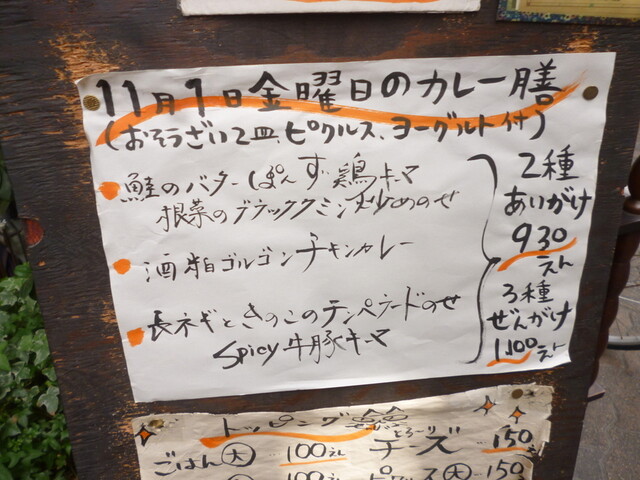 11月1日金曜日のカレー膳
(おそうざい2皿、ピクルス、ヨーグルト付)
鮭のバターぽんず鶏キーマ
根菜のブラッククミン炒めのせ
酒粕ゴルゴンチキンカレー
長ネギときのこのテンペラードのせ
Spicy牛豚キーマ
2種
あいがけ
930
えん
3種
ぜんがけ
1,100えん
トッピング
ごはん(大) 100えん
とろーり
チーズ 150
100えん
(大) 150